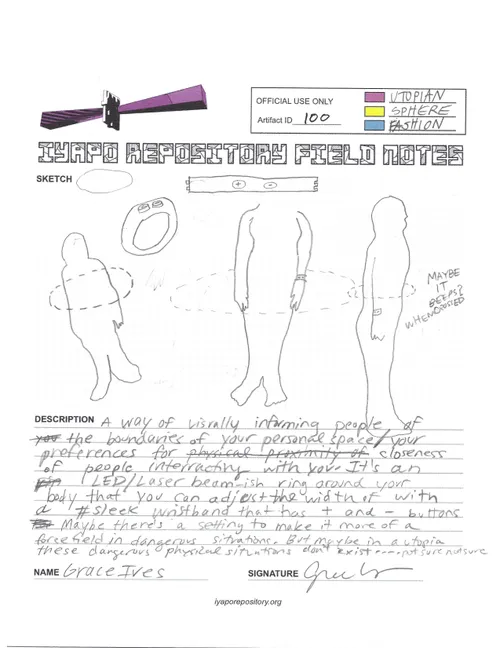 OFFICIAL USE ONLY
Artifact ID 100
UTOPIAN
SPHERE
FASHION
IYAPO REPOSITORY FIELD NOTES
SKETCH
+ -
MAYBE
IT
BEEPS?
WHEN CROSSED
DESCRIPTION A way of visually informing people of
the boundaries of your personal space/your
preferences for physical proximity of closeness
of people interracting with you. It's an
LED/Laser beam-ish ring around your
body that you can adjust the width of with
a #sleek wristband that has + and - buttons
Maybe there's a setting to make it more of a
forcefield in dangerous situations. But maybe in a utopia
these dangerous physical situations don't exist ---- not sure not sure
NAME Grace Ives SIGNATURE
iyaporepository.org